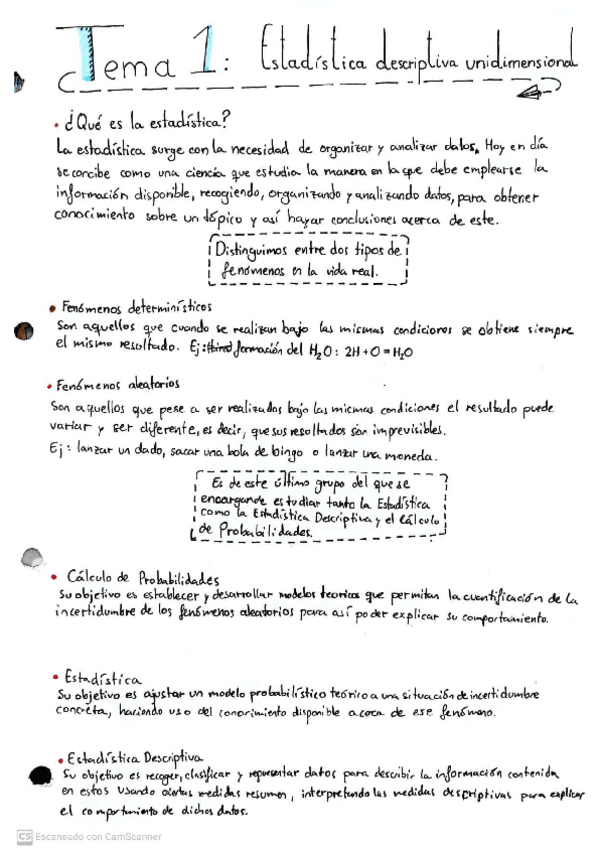 Tema 1: Estadística descriptiva unidimensional
• ¿Qué es la estadística?
La estadística surge con la necesidad de organizar y analizar datos. Hoy en día
se concibe como una ciencia que estudia la manera en la que debe emplearse la
información disponible, recogiendo, organizando y analizando datos, para obtener
conocimiento sobre un tópico y así hayar conclusiones acerca de este.
Distinguimos entre dos tipos de
fenómenos en la vida real.
• Fenómenos determinísticos
Son aquellos que cuando se realizan bajo las mismas condiciones se obtiene siempre
el mismo resultado. Ej: formación del H2O: 2H + O = H2O
• Fenómenos aleatorios
Son aquellos que pese a ser realizados bajo las mismas condiciones el resultado puede
variar y ser diferente, es decir, que sus resultados son imprevisibles.
Ej: lanzar un dado, sacar una bola de bingo o lanzar una moneda.
Es de este último grupo del que se
encargan de estudiar tanto la Estadística
como la Estadística Descriptiva y el Cálculo
de Probabilidades.
• Cálculo de Probabilidades
Su objetivo es establecer y desarrollar modelos teoricos que permitan la cuantificación de la
incertidumbre de los fenómenos aleatorios para así poder explicar su comportamiento.
• Estadística
Su objetivo es ajustar un modelo probabilístico teórico a una situación de incertidumbre
concreta, haciendo uso del conocimiento disponible acerca de ese fenómeno.
• Estadística Descriptiva
Su objetivo es recoger, clasificar y representar datos para describir la información contenida
en estos usando ciertas medidas resumen, interpretando las medidas descriptivas para explicar
el comportamiento de dichos datos.
CS Escaneado con CamScanner